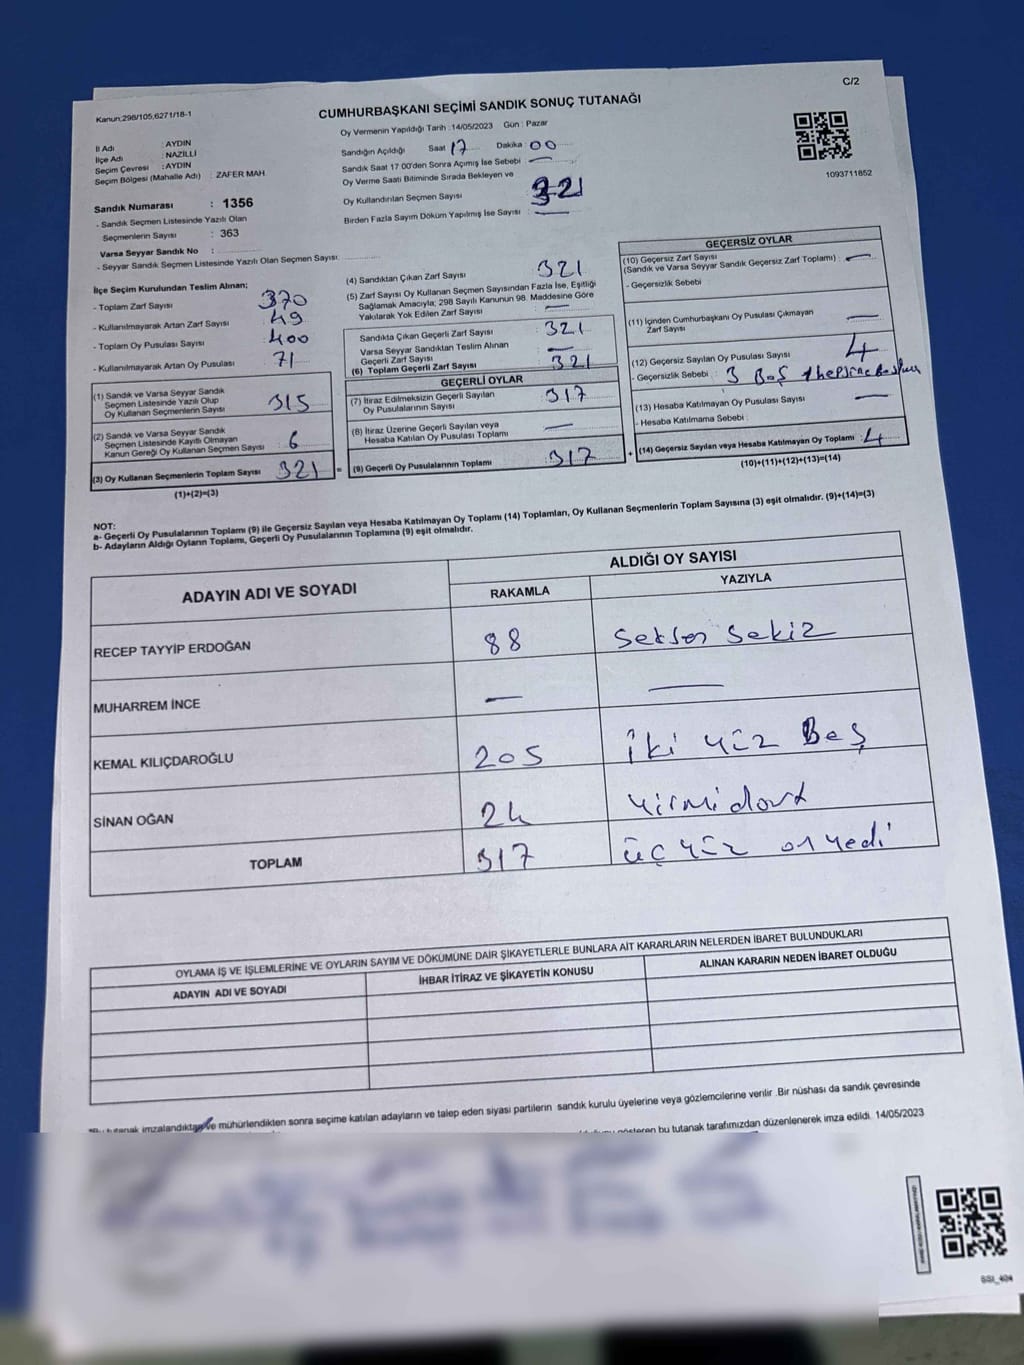 C/2
Kanun:298/105,6271/18-1
CUMHURBAŞKANI SEÇİMİ SANDIK SONUÇ TUTANAĞI
Oy Vermenin Yapıldığı Tarih : 14/05/2023 Gün : Pazar
İl Adı : AYDIN
İlçe Adı : NAZİLLİ
Seçim Çevresi : AYDIN
Seçim Bölgesi (Mahalle Adı) : ZAFER MAH.
Sandık Numarası : 1356
- Sandık Seçmen Listesinde Yazılı Olan
Seçmenlerin Sayısı : 363
Varsa Seyyar Sandık No :
- Seyyar Sandık Seçmen Listesinde Yazılı Olan Seçmen Sayısı:
Sandığın Açıldığı Saat 17 Dakika 00
Sandık Saat 17:00'den Sonra Açımış İse Sebebi : —
Oy Verme Saati Bitiminde Sırada Bekleyen ve
Oy Kullandırılan Seçmen Sayısı : 321
Birden Fazla Sayım Döküm Yapılmış İse Sayısı : —
1093711852
İlçe Seçim Kurulundan Teslim Alınan;
- Toplam Zarf Sayısı : 370
- Kullanılmayarak Artan Zarf Sayısı : 49
- Toplam Oy Pusulası Sayısı : 400
- Kullanılmayarak Artan Oy Pusulası : 71
(1) Sandık ve Varsa Seyyar Sandık
Seçmen Listesinde Yazılı Olup
Oy Kullanan Seçmenlerin Sayısı : 315
(2) Sandık ve Varsa Seyyar Sandık
Seçmen Listesinde Kayıtlı Olmayan
Kanun Gereği Oy Kullanan Seçmen Sayısı : 6
(3) Oy Kullanan Seçmenlerin Toplam Sayısı : 321 =
(1)+(2)=(3)
(4) Sandıktan Çıkan Zarf Sayısı : 321
(5) Zarf Sayısı Oy Kullanan Seçmen Sayısından Fazla İse, Eşitliği
Sağlamak Amacıyla; 298 Sayılı Kanunun 98. Maddesine Göre
Yakılarak Yok Edilen Zarf Sayısı : —
Sandıkta Çıkan Geçerli Zarf Sayısı : 321
Varsa Seyyar Sandıktan Teslim Alınan
Geçerli Zarf Sayısı : —
(6) Toplam Geçerli Zarf Sayısı : 321
GEÇERLİ OYLAR
(7) İtiraz Edilmeksizin Geçerli Sayılan
Oy Pusulalarının Sayısı : 317
(8) İtiraz Üzerine Geçerli Sayılan veya
Hesaba Katılan Oy Pusulası Toplamı : —
(9) Geçerli Oy Pusulalarının Toplamı : 317 +
GEÇERSİZ OYLAR
(10) Geçersiz Zarf Sayısı
(Sandık ve Varsa Seyyar Sandık Geçersiz Zarf Toplamı) : —
- Geçersizlik Sebebi :
(11) İçinden Cumhurbaşkanı Oy Pusulası Çıkmayan
Zarf Sayısı : —
(12) Geçersiz Sayılan Oy Pusulası Sayısı : 4
- Geçersizlik Sebebi : 3 Boş
(13) Hesaba Katılmayan Oy Pusulası Sayısı : —
- Hesaba Katılmama Sebebi :
(14) Geçersiz Sayılan veya Hesaba Katılmayan Oy Toplamı : 4
(10)+(11)+(12)+(13)=(14)
NOT:
a- Geçerli Oy Pusulalarının Toplamı (9) ile Geçersiz Sayılan veya Hesaba Katılmayan Oy Toplamı (14) Toplamları, Oy Kullanan Seçmenlerin Toplam Sayısına (3) eşit olmalıdır. (9)+(14)=(3)
b- Adayların Aldığı Oyların Toplamı, Geçerli Oy Pusulalarının Toplamına (9) eşit olmalıdır.
ADAYIN ADI VE SOYADI ALDIĞI OY SAYISI
RAKAMLA YAZIYLA
RECEP TAYYİP ERDOĞAN 88 Seksen Sekiz
MUHARREM İNCE — —
KEMAL KILIÇDAROĞLU 205 İki yüz Beş
SİNAN OĞAN 24 Yirmi dört
TOPLAM 317 üç yüz on yedi
OYLAMA İŞ VE İŞLEMLERİNE VE OYLARIN SAYIM VE DÖKÜMÜNE DAİR ŞİKAYETLERLE BUNLARA AİT KARARLARIN NELERDEN İBARET BULUNDUKLARI
ADAYIN ADI VE SOYADI İHBAR İTİRAZ VE ŞİKAYETİN KONUSU ALINAN KARARIN NEDEN İBARET OLDUĞU
tutanak imzalandıktan ve mühürlendikten sonra seçime katılan adayların ve talep eden siyasi partilerin sandık kurulu üyelerine veya gözlemcilerine verilir .Bir nüshası da sandık çevresinde
gösteren bu tutanak tarafımızdan düzenlenerek imza edildi. 14/05/2023
SSI_404